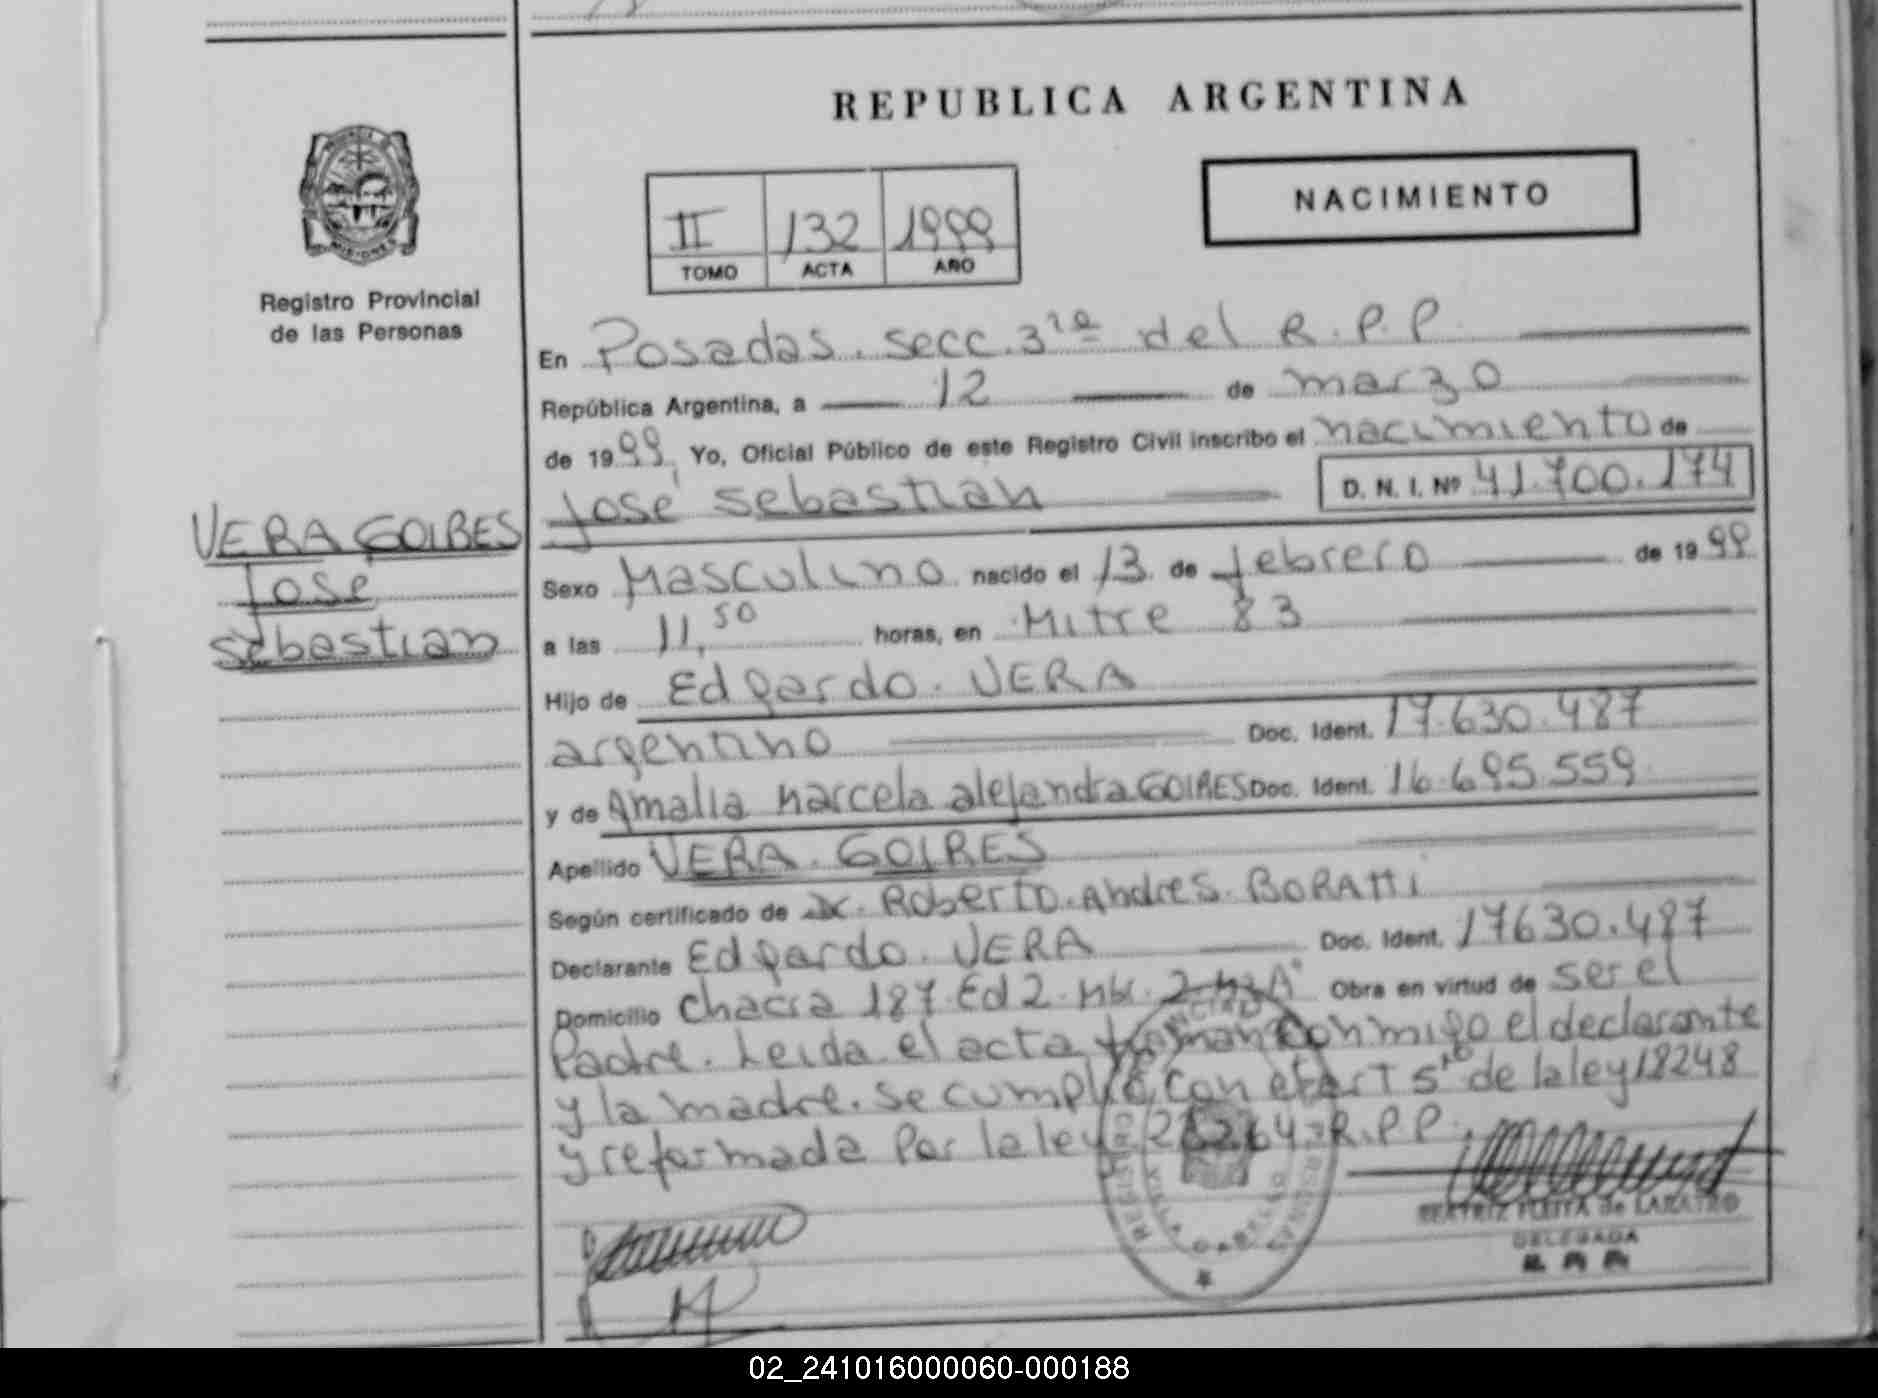 REPUBLICA ARGENTINA
NACIMIENTO
II 132 1999
TOMO ACTA AÑO
MISIONES
Registro Provincial
de las Personas
En Posadas. secc. 3ra del R.P.P.
República Argentina, a 12 de marzo
de 1999, Yo, Oficial Público de este Registro Civil inscribo el nacimiento de
José Sebastian D. N. I. Nº 41.700.174
VERA GOIRES
José
Sebastian
Sexo Masculino nacido el 13 de febrero de 1999
a las 11,50 horas, en Mitre 83
Hijo de Edgardo. VERA
argentino Doc. Ident. 17.630.487
y de Amalia Marcela alejandra GOIRES Doc. Ident. 16.695.559
Apellido VERA. GOIRES
Según certificado de Dr. Roberto. Andres. BORATTI
Declarante Edgardo. VERA Doc. Ident. 17630.487
Domicilio Chacra 187. Ed 2. Mz A Obra en virtud de ser el
Padre. Leida el acta firman conmigo el declarante
y la madre. Se cumplió con el art 5to de la ley 18248
y reformada Por la ley R.P.P.
BEATRIZ de
DELEGADA
02_241016000060-000188